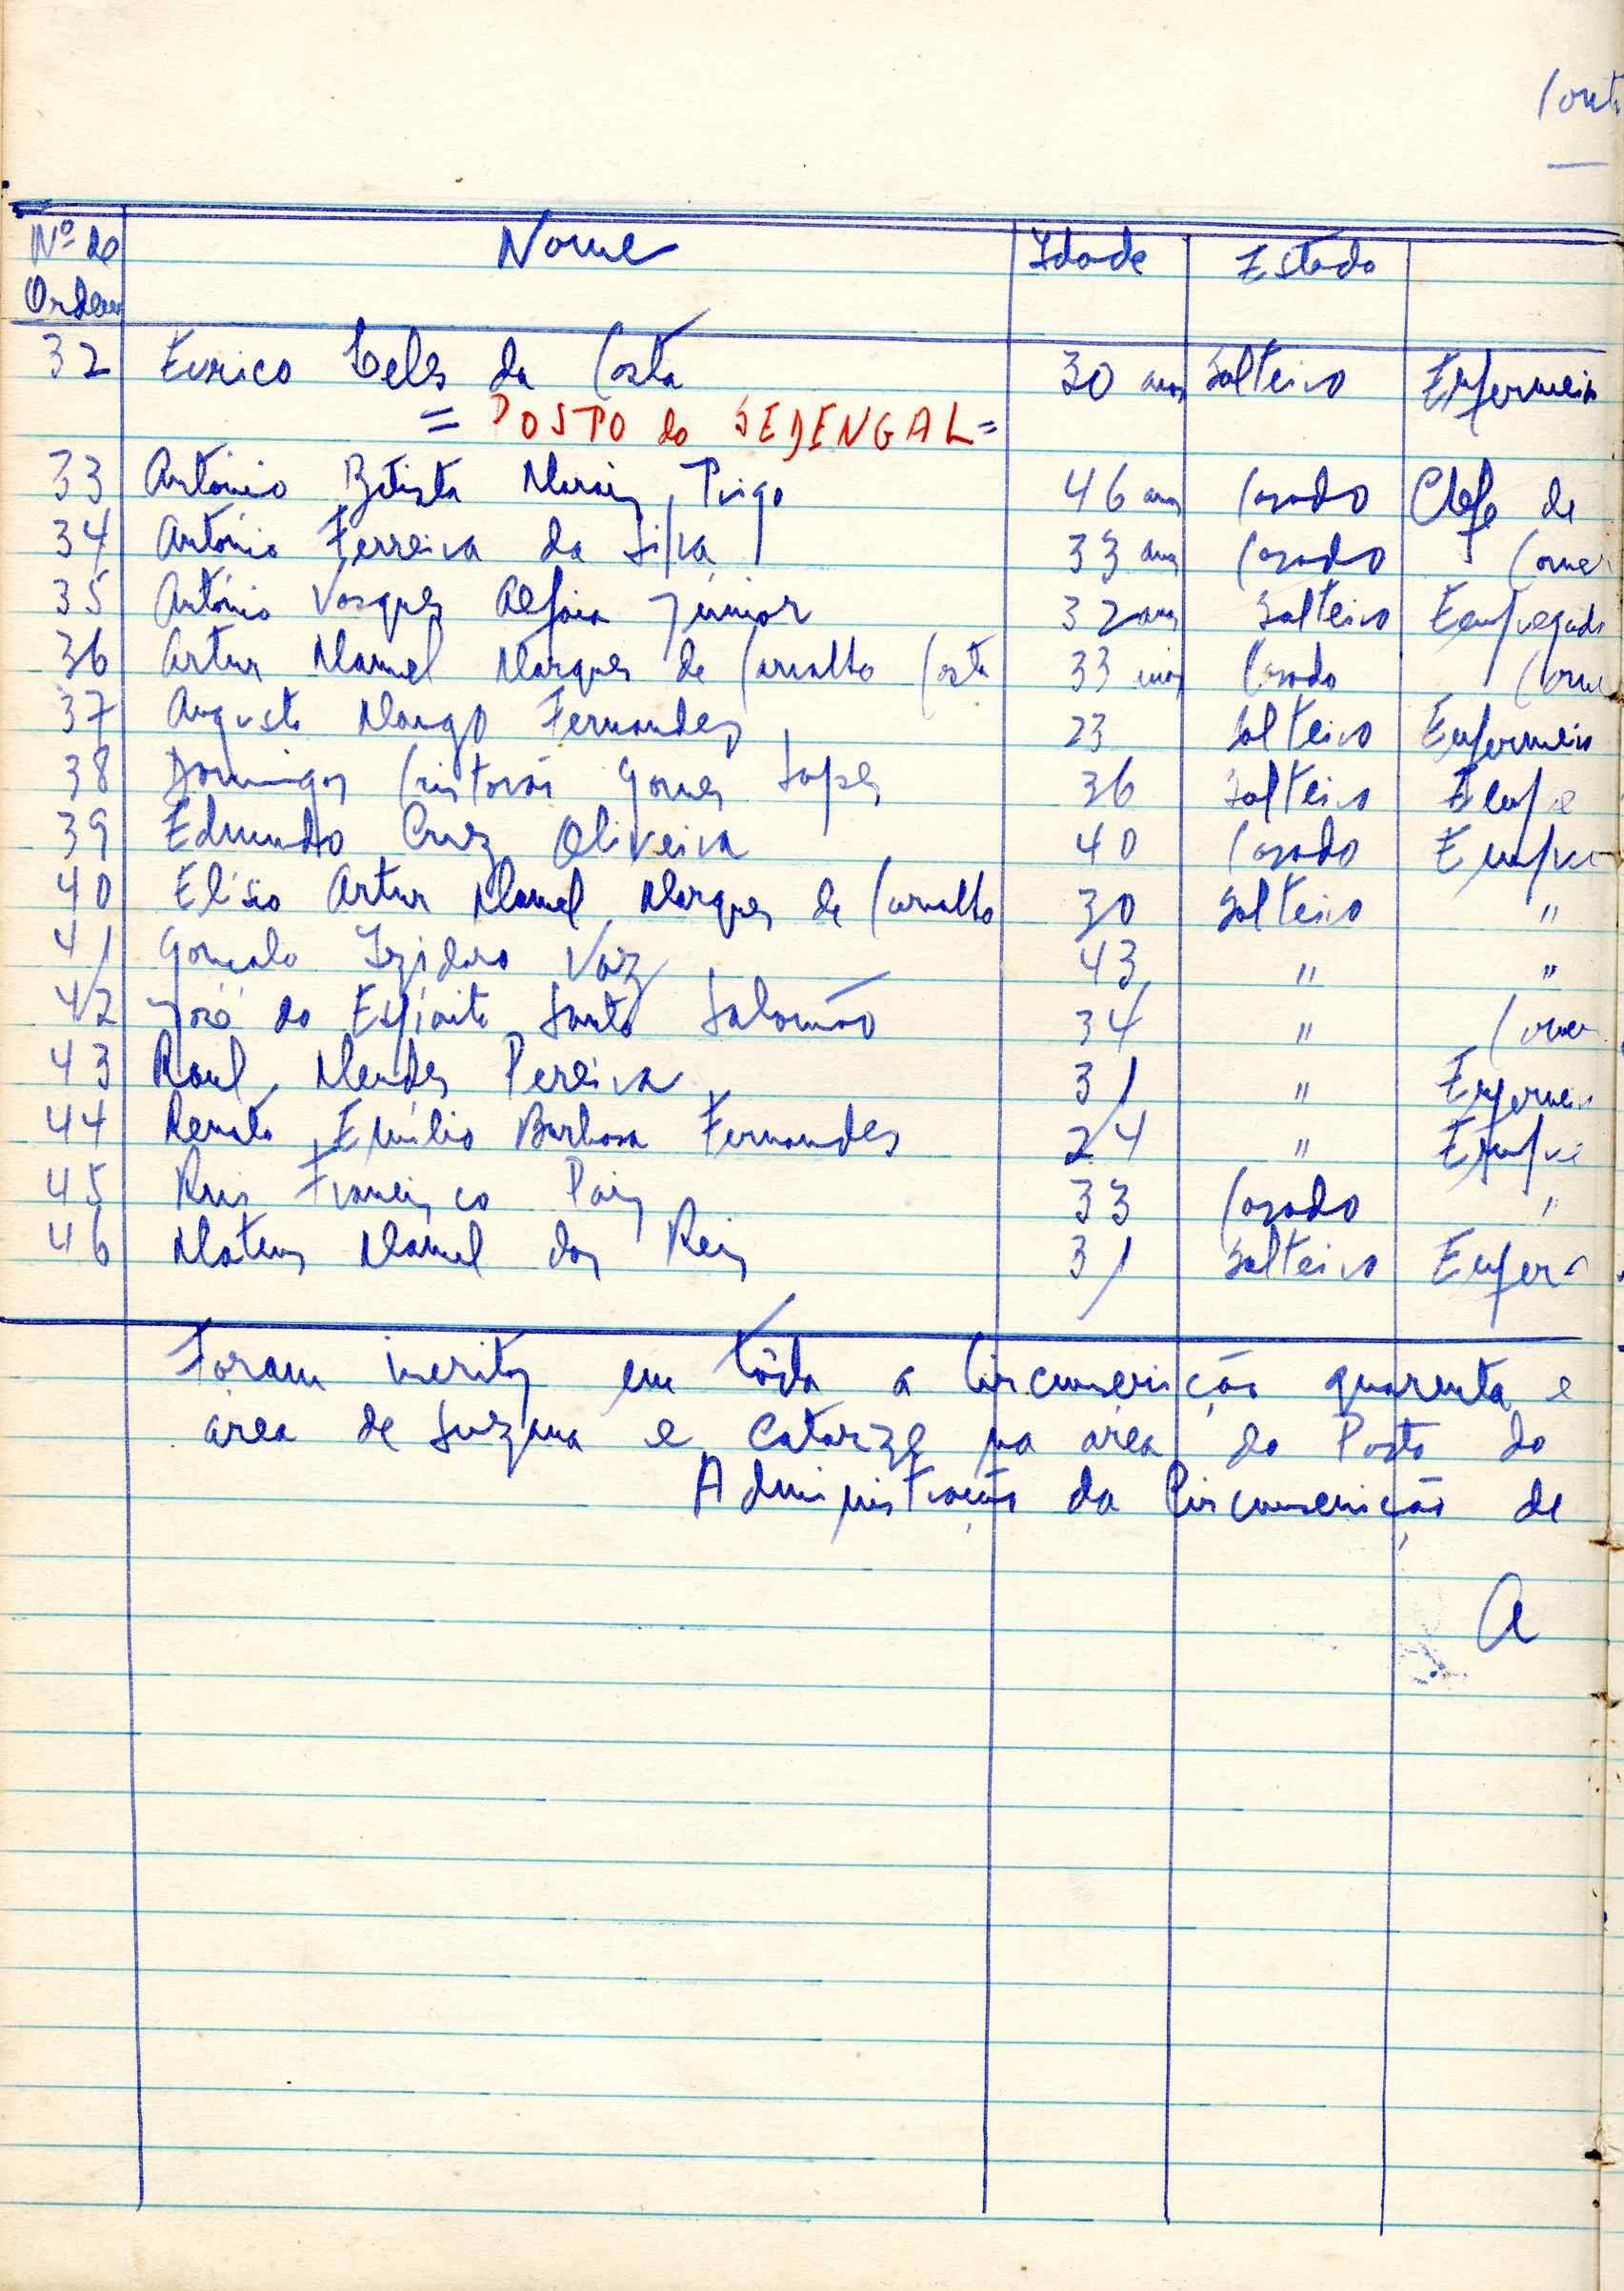 Cont
Nº de Ordem Nome Idade Estado
32 Eurico Teles da Costa 30 anos Solteiro Enfermeiro
= POSTO do SEDENGAL =
33 António Batista Morais Trigo 46 anos Casado Chefe de
34 António Ferreira da Silva 33 anos Casado Comer
35 António Vasques Alfaia Júnior 32 anos Solteiro Empregado
36 Artur Manuel Marques de Carvalho Costa 33 anos Casado Come
37 Augusto Mango Fernandes 23 Solteiro Enfermeiro
38 Domingos Cristovão Gomes Lopes 36 Solteiro Empre
39 Edmundo Cruz Oliveira 40 Casado Empre
40 Elísio Artur Manuel Marques de Carvalho 30 Solteiro "
41 Gonçalo Izidoro Vaz 43 " "
42 José do Espírito Santo Salomão 34 " Comer
43 Raul Mendes Pereira 31 " Enfermei
44 Renato Emílio Barbosa Fernandes 24 " Empre
45 Francisco Pais 33 Casado "
46 Mateus Manuel dos Reis 31 Solteiro Enfer
Foram inscritos em tôda a Circunscrição quarenta e
área de Suzana e catorze na área do Posto do
Administração da Circunscrição de
A